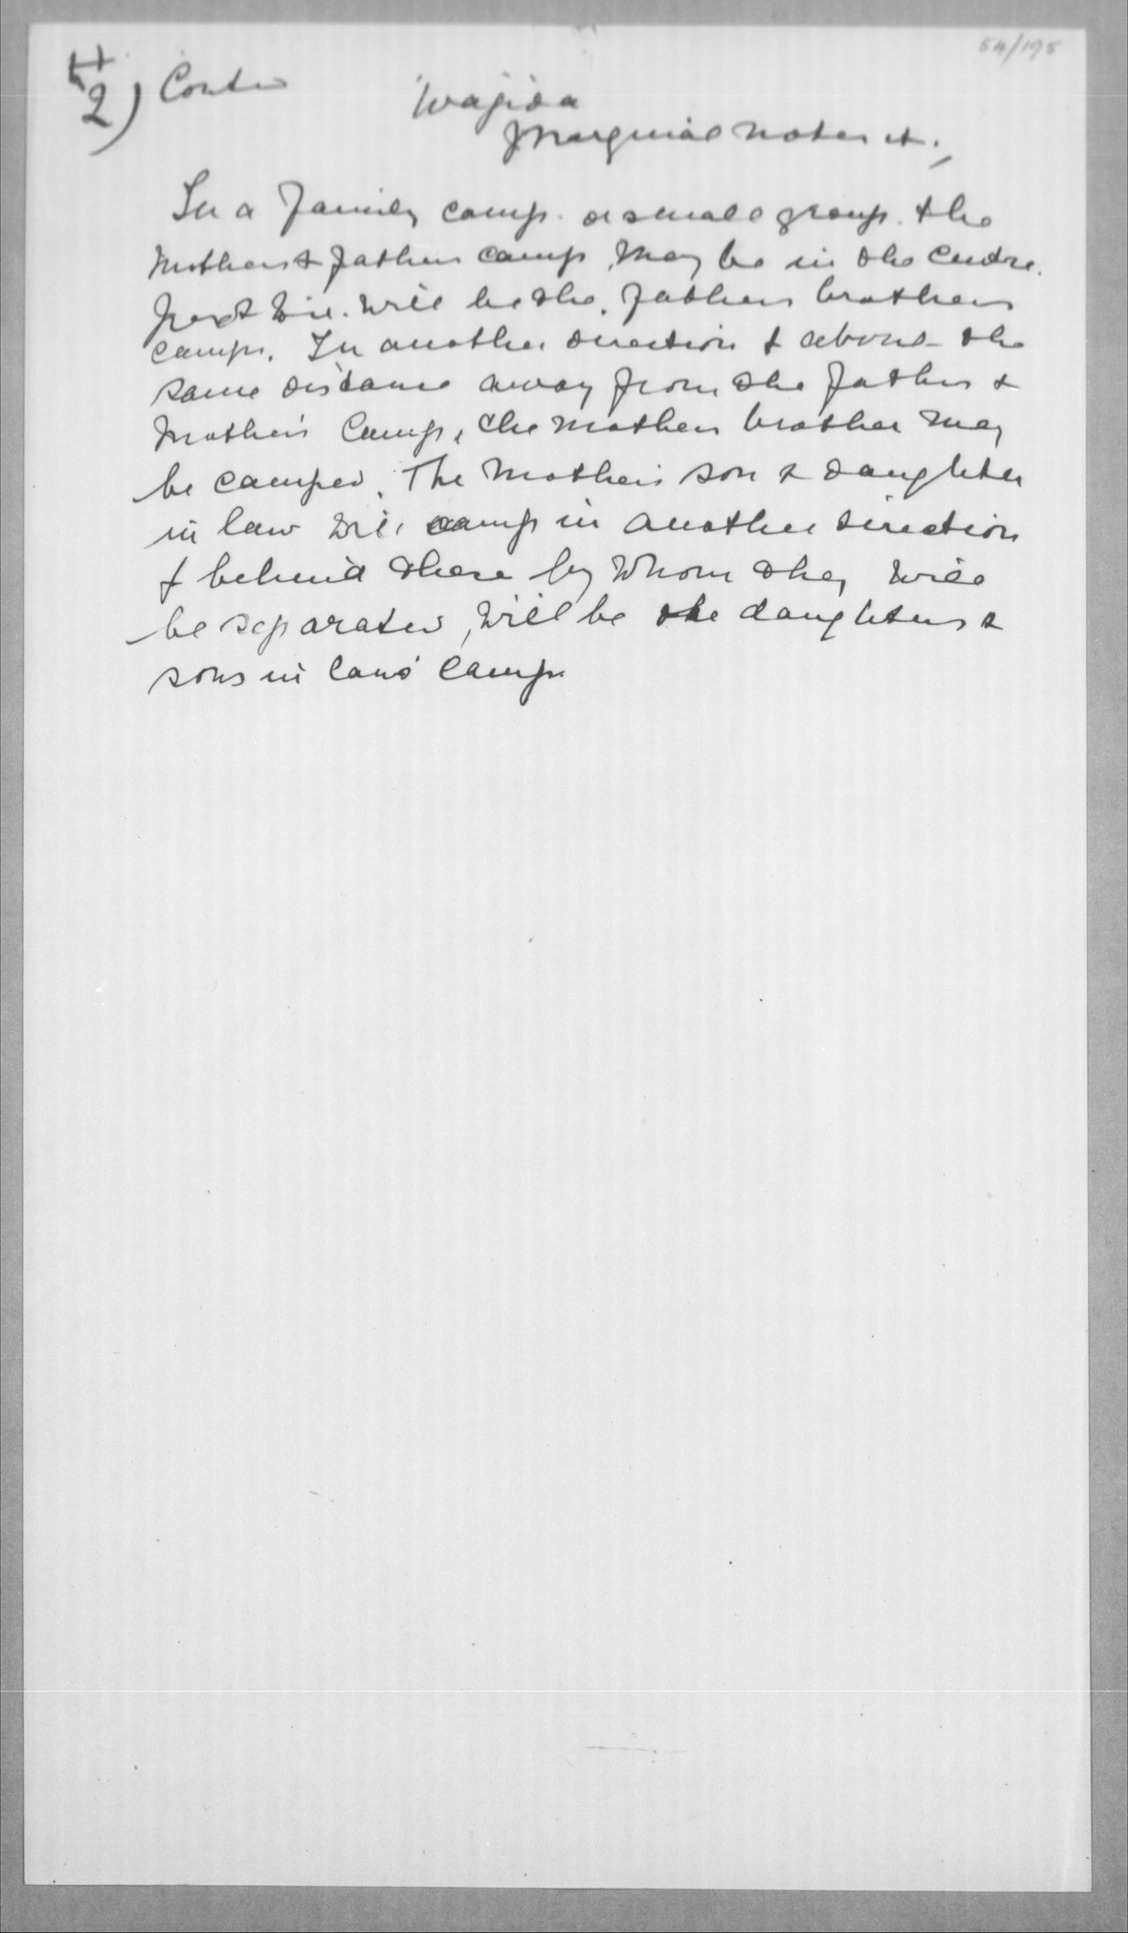 54/195
2) Contd
Wajida
Marginal notes
In a family camp. or small group. the
Mother & fathers camp may be in the centre.
Next will be the fathers brothers
camp. In another direction & about the
same distance away from the father &
Mother's Camp, the mothers brother may
be camped. The Mother's son & daughter
in law camp in another direction
& behind these by Whom they will
be separated, will be the daughters &
sons in laws' camp